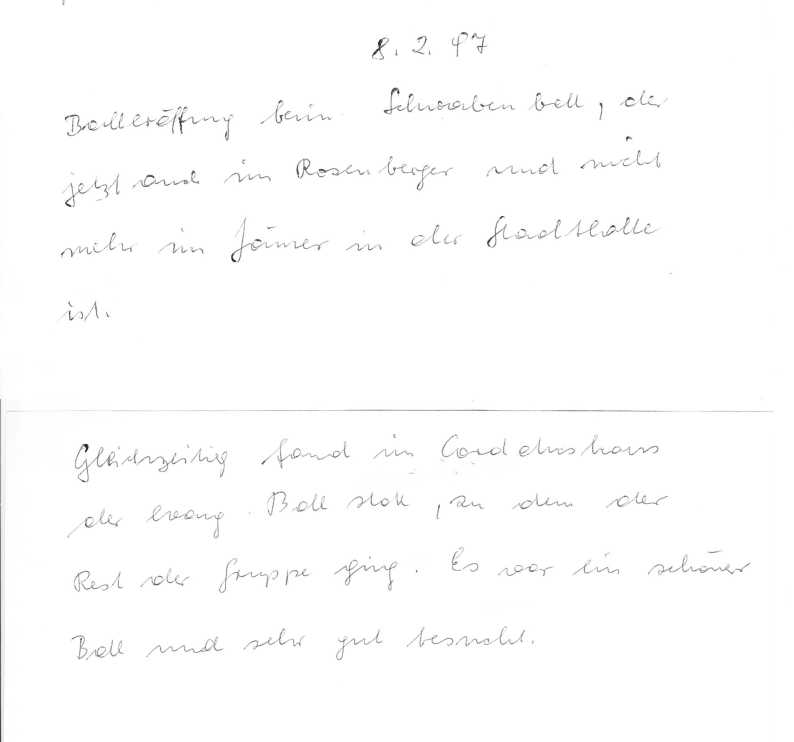 8. 2. 97
Balleröffnung beim Schwabenball, der
jetzt auch im Rosenberger und nicht
mehr im Jänner in der Stadthalle
ist.
Gleichzeitig fand im Cordatushaus
der evang. Ball statt, zu dem der
Rest der Gruppe ging. Es war ein schöner
Ball und sehr gut besucht.